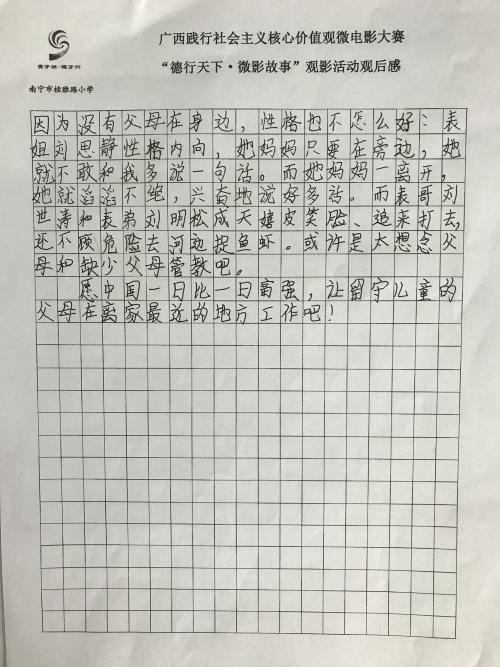 广西践行社会主义核心价值观微电影大赛
“德行天下·微影故事”观影活动观后感
南宁市桂雅路小学
因为没有父母在身边，性格也不怎么好：表
姐刘思静性格内向，她妈妈只要在旁边，她
就不敢和我多说一句话。而她妈妈一离开，
她就滔滔不绝，兴奋地说好多话。而表哥刘
世涛和表弟刘明松成天嬉皮笑脸、追来打去，
还不顾危险去河边捉鱼虾。或许是太想念父
母和缺少父母管教吧。
愿中国一日比一日富强，让留守儿童的
父母在离家最近的地方工作吧！